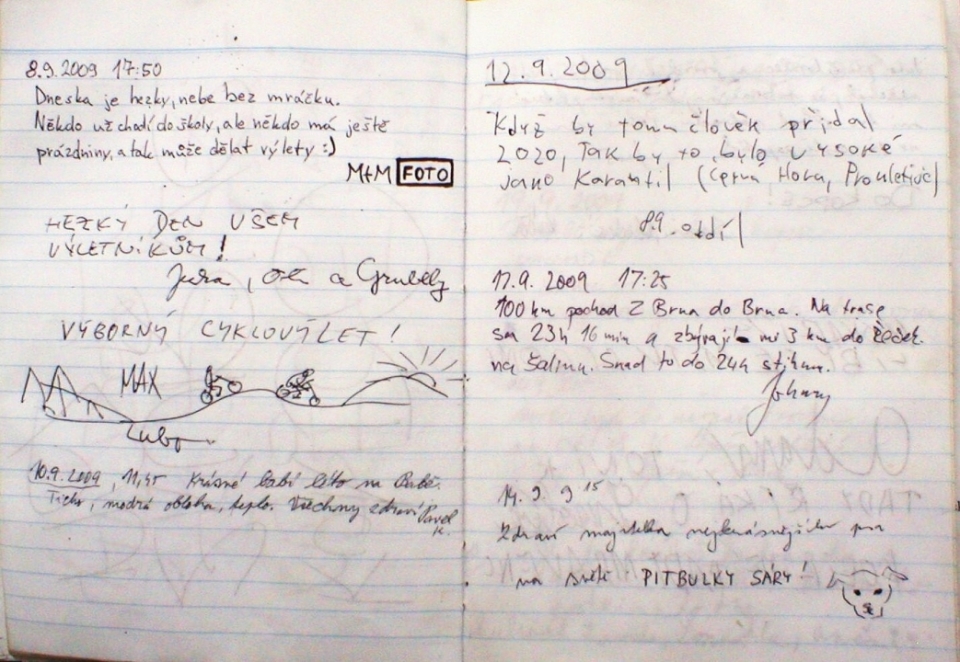 8.9.2009 17:50
Dneska je hezky, nebe bez mráčku.
Někdo už chodí do školy, ale někdo má ještě
prázdniny, a tak může dělat výlety :)
M+M FOTO
HEZKÝ DEN VŠEM
VÝLETNÍKŮM!
Jura, a
VÝBORNÝ CYKLOVÝLET!
MAX
Lubo
10.9.2009, 11,45 Krásné babí léto na Babě.
Ticho, modrá obloha, teplo. Všechny zdraví Pavel
K.
12.9.2009
Když by tomu člověk přidal
2020, Tak by to bylo vysoké
jano Karantil (Černá Hora, Prokletije)
89. oddíl
12.9.2009 17:25
100 km pochod z Brna do Brna. Na trase
sm 23h 16 min a zbývají mi 3 km do Řeček.
na šalinu. Snad to do 24h stihnu.
Johny
14.9. 9 15
Zdraví majitelka nejkrásnějšího psa
na světě PITBULKY SÁRY!